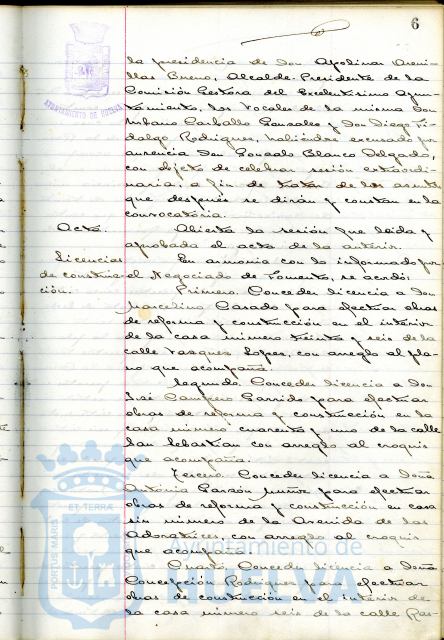 6
la presidencia de don Apolinar Areni-
llas Bueno, Alcalde-Presidente de la
Comisión Gestora del Excelentísimo Ayun-
tamiento, los Vocales de la misma Don
Urbano Carballo Gonzalez y Don Diego Fi-
dalgo Rodriguez, habiéndose excusado por
ausencia Don Gonzalo Blanco Delgado,
con objeto de celebrar sesión extraordi-
naria, a fin de tratar de los asuntos
que después se dirán y constan en la
convocatoria.
Acta. Abierta la sesión fue leida y
aprobada el acta de la anterior.
Licencias En armonía con lo informado por
de construc- el Negociado de Fomento, se acordó:
ción. Primero. Conceder licencia a Don
Marcelino Casado para efectuar obras
de reforma y construcción en el interior
de la casa número treinta y seis de la
calle Vasquez Lopez, con arreglo al pla-
no que acompaña.
Segundo. Conceder licencia a Don
José Garrido para efectuar
obras de reforma y construcción en la
casa número cuarenta y uno de la calle
San Sebastian con arreglo al croquis
que acompaña.
Tercero. Conceder licencia a Doña
Antonia Garzón para efectuar
obras de reforma y construcción en casa
sin número de la Avenida de las
Adoratrices, con arreglo al croquis
que acompaña.
Cuarto. Conceder licencia a Doña
Concepción Rodriguez para efectuar
obras de construcción en el interior de
la casa número seis de la calle Ras-
AYUNTAMIENTO DE HUELVA
PORTUS MARIS ET TERRAE
Ayuntamiento de
HUELVA